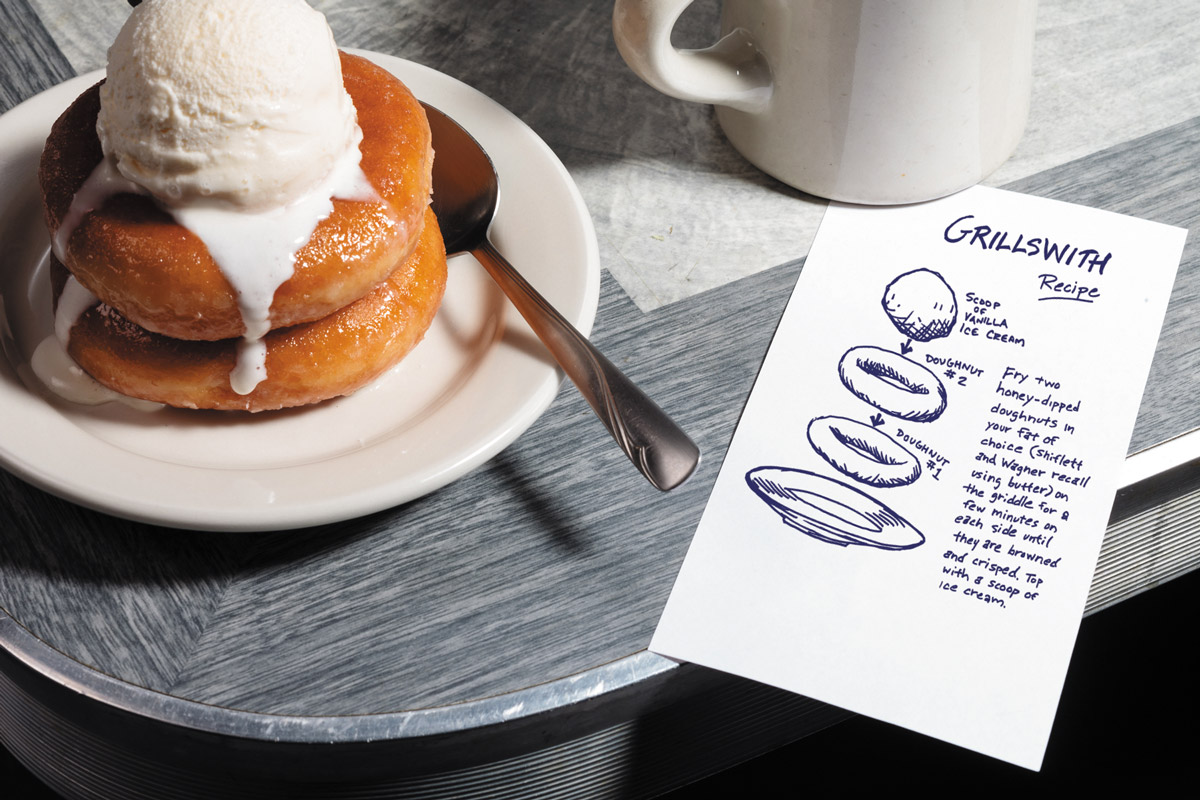 GRILLSWITH
Recipe
SCOOP
OF
VANILLA
ICE CREAM
DOUGHNUT
#2
DOUGHNUT
#1
Fry two
honey-dipped
doughnuts in
your fat of
choice (Shiflett
and Wagner recall
using butter) on
the griddle for a
few minutes on
each side until
they are browned
and crisped. Top
with a scoop of
ice cream.